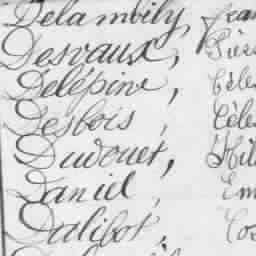 Delambily, Jean
Desvaux, Pier
Delépine, Céles
Desbois, Céles
Dudouet, Hil
Daniel, Em
Dalibot,